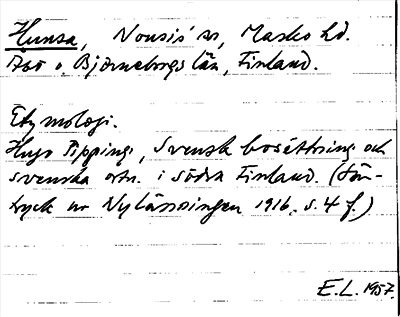 Hunsa, Nousis sn, Masko hd.
Åbo o. Björneborgs län, Finland.
Etymologi.
Hugo Pipping, Svensk bosättning och
svenska ortn. i södra Finland. (Sär-
tryck ur Nylänningen 1916, s. 4 f.)
E.L. 1957.